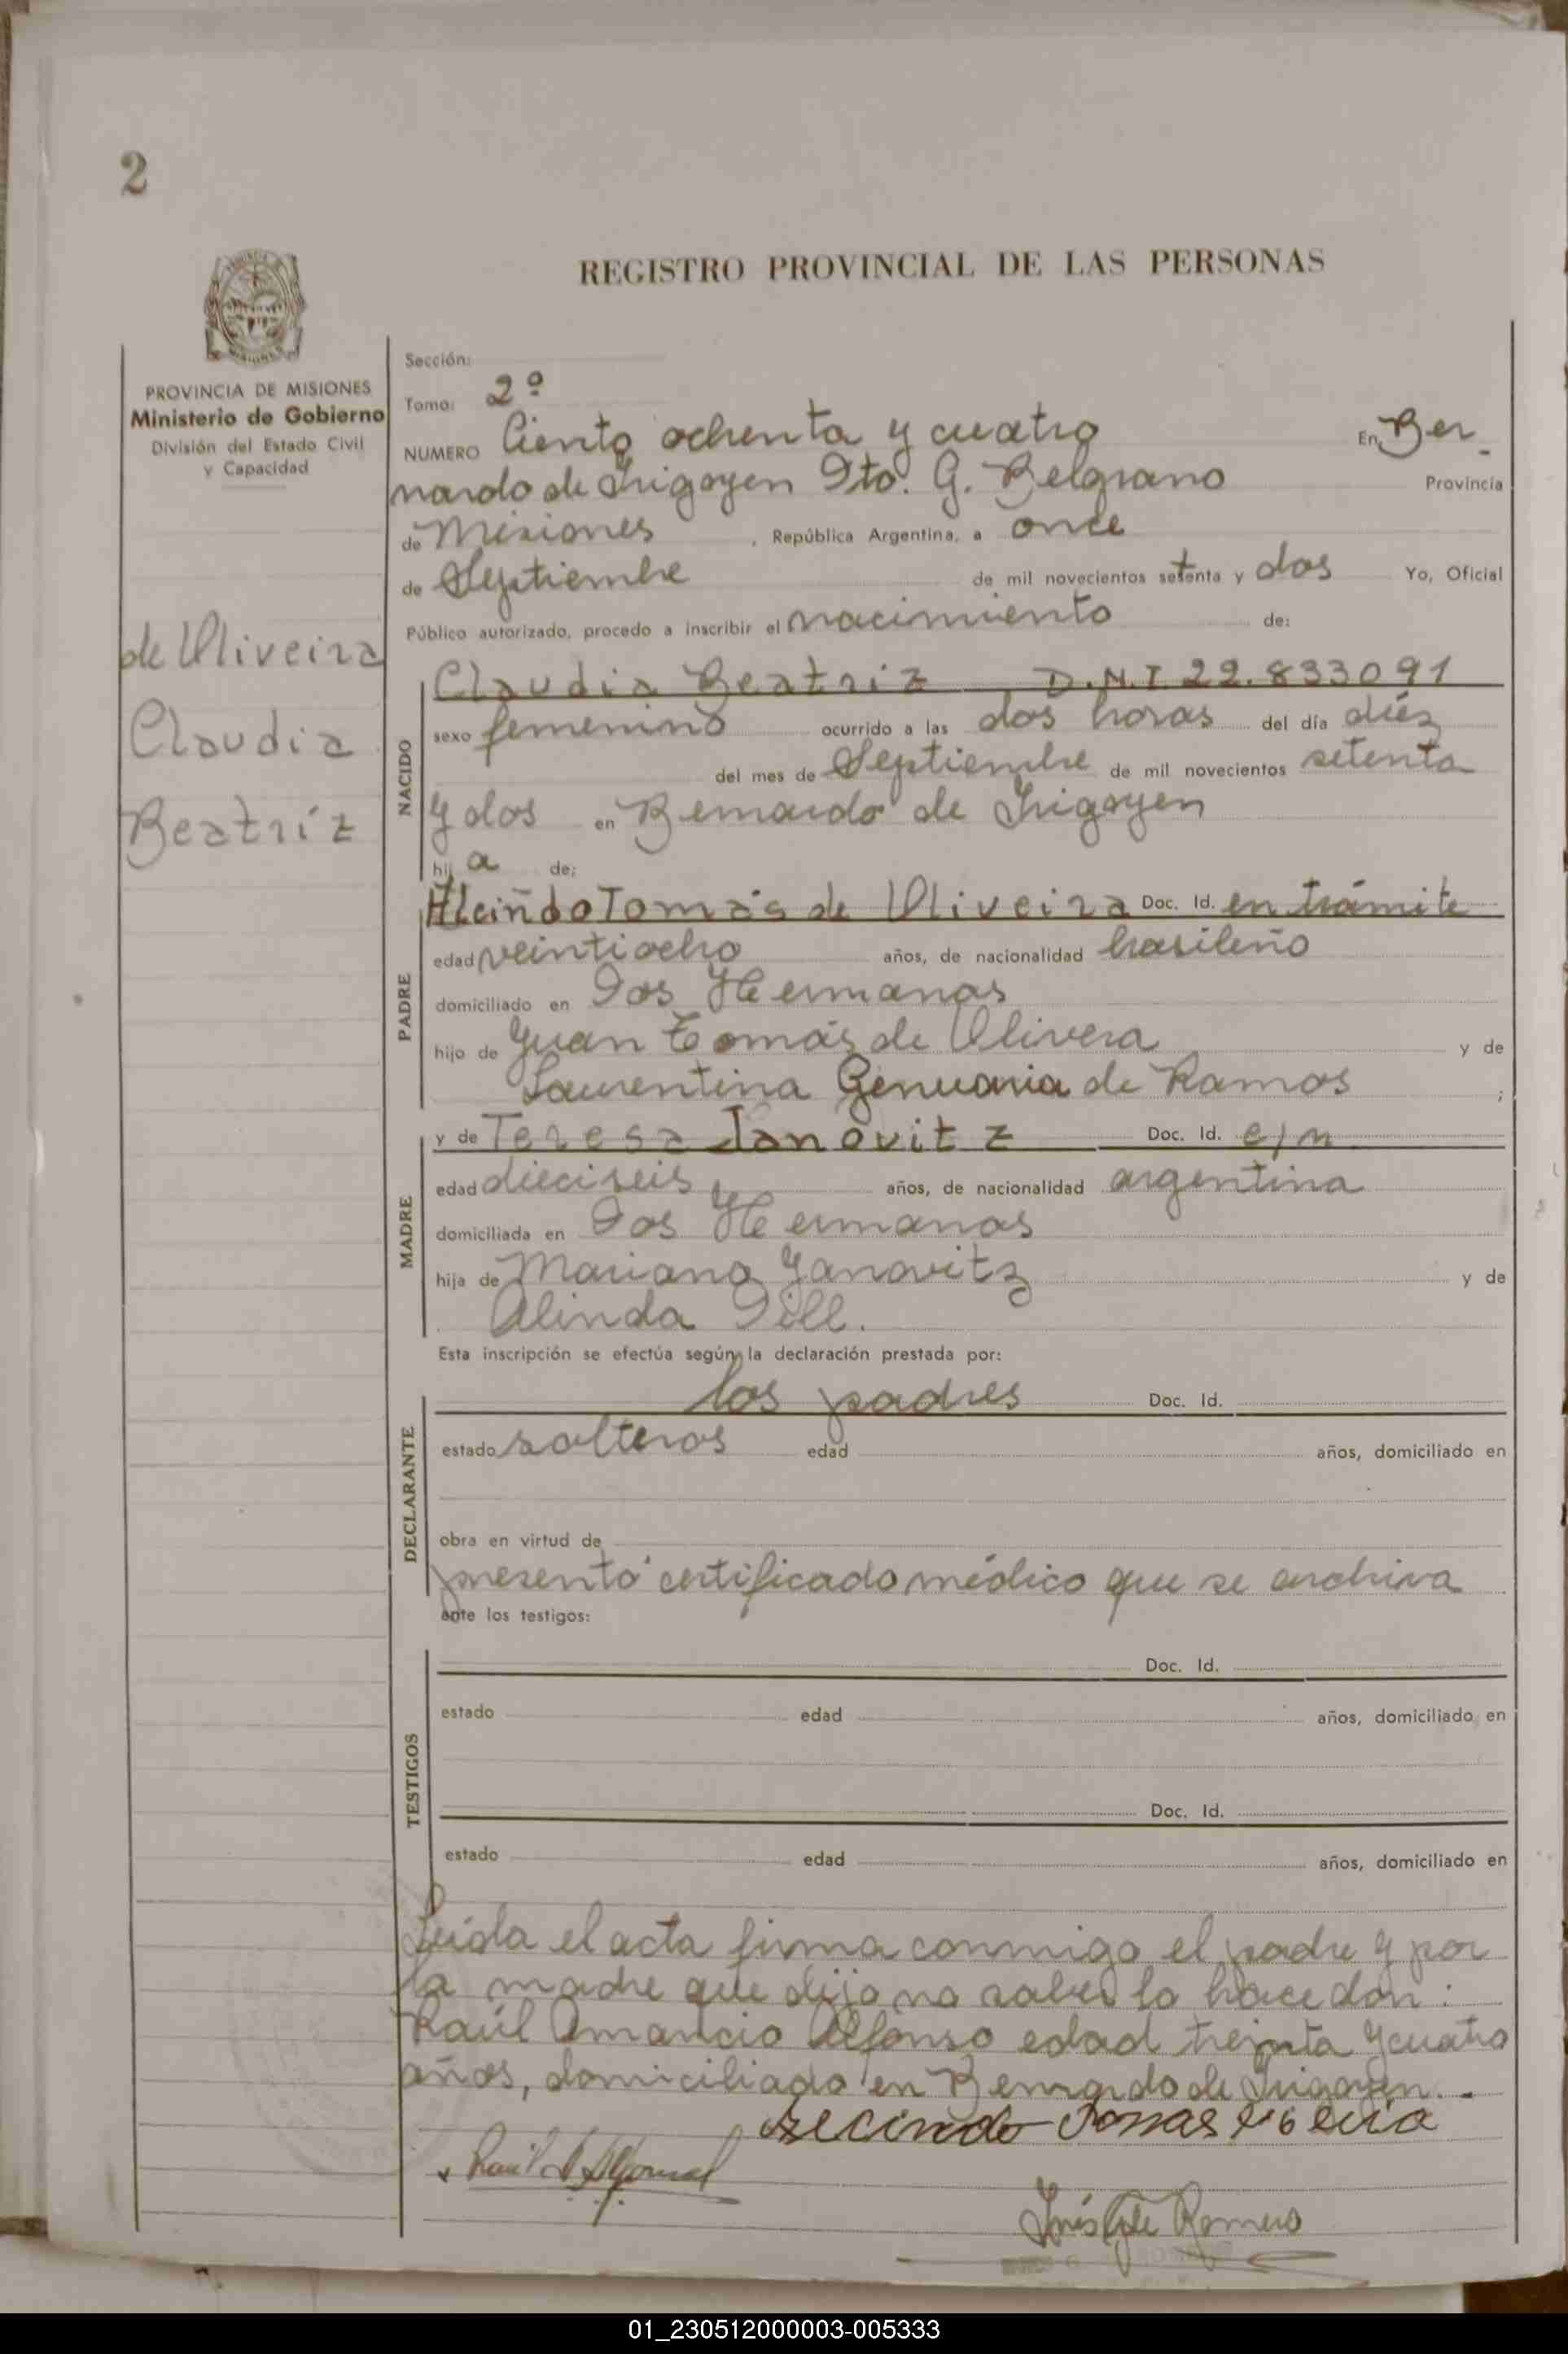 2
REGISTRO PROVINCIAL DE LAS PERSONAS
PROVINCIA DE MISIONES
Ministerio de Gobierno
División del Estado Civil
y Capacidad
de Oliveira
Claudia
Beatriz
Sección:
Tomo: 2º
NUMERO Ciento ochenta y cuatro En Ber-
nardo de Irigoyen Dto. G. Belgrano Provincia
de Misiones , República Argentina, a once
de Septiembre de mil novecientos setenta y dos Yo, Oficial
Público autorizado, procedo a inscribir el nacimiento de:
NACIDO
Claudia Beatriz D.N.I 22.833091
sexo femenino ocurrido a las dos horas del día diéz
del mes de Septiembre de mil novecientos setenta
y dos en Bernardo de Irigoyen
hij a de:
PADRE
Tomás de Oliveira Doc. Id. en trámite
edad veintiocho años, de nacionalidad brasileño
domiciliado en Dos Hermanas
hijo de Juan Tomás de Olivera y de
Laurentina Genuaria de Ramos ;
MADRE
y de Teresa Janovitz Doc. Id.
edad dieciseis años, de nacionalidad argentina
domiciliada en Dos Hermanas
hija de Mariano Yanovitz y de
Alinda Dill.
Esta inscripción se efectúa según la declaración prestada por:
DECLARANTE
los padres Doc. Id.
estado solteros edad años, domiciliado en
obra en virtud de
presentó certificado médico que se archiva
ante los testigos:
TESTIGOS
Doc. Id.
estado edad años, domiciliado en
Doc. Id.
estado edad años, domiciliado en
Leída el acta firma conmigo el padre y por
la madre que dijo no saber lo hace don:
Raúl Amancio Alfonso edad treinta y cuatro
años, domiciliado en Bernardo de Irigoyen.-
Romero
01_230512000003-005333